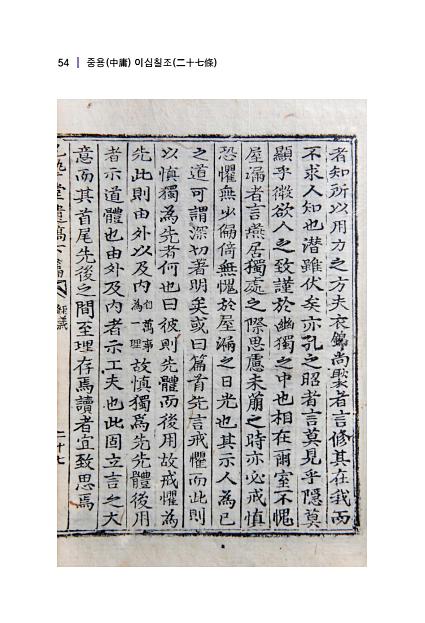 54 | 중용(中庸) 이십칠조(二十七條)
者知所以用力之方夫衣錦尚褧者言修其在我而
不求人知也潛雖伏矣亦孔之昭者言莫見乎隱莫
顯乎微欲人之致謹於幽獨之中也相在爾室不愧
屋漏者言燕居獨處之際思慮未萌之時亦必戒慎
恐懼無少偏倚無愧於屋漏之日光也其示人為己
之道可謂深切著明矣或曰篇首先言戒懼而此則
以慎獨為先者何也曰彼則先體而後用故戒懼為
先此則由外以及內自萬事為一理故慎獨為先先體後用
者示道體也由外及內者示工夫也此固立言之大
意而其首尾先後之間至理存焉讀者宜致思焉
堂遺稿下篇 經義 二十七